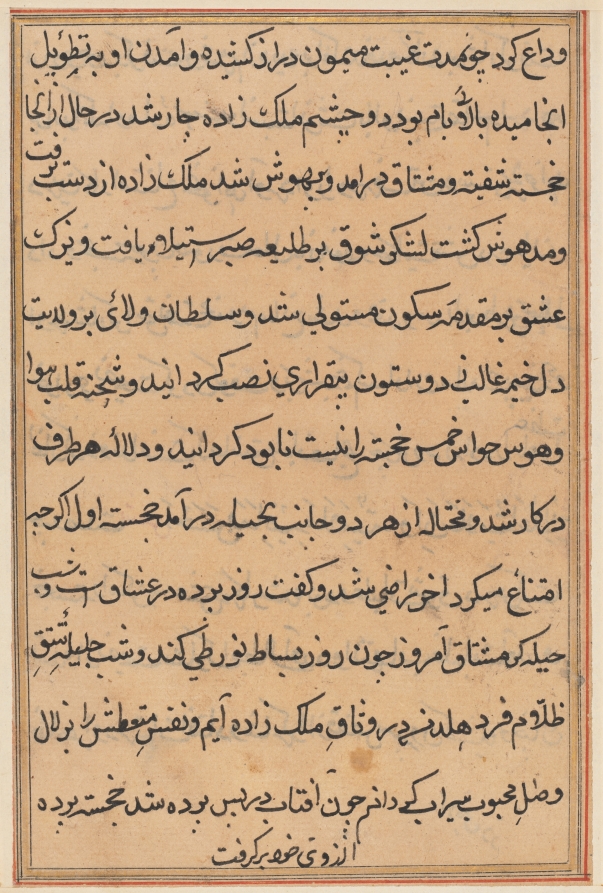 وداع کرد چو مدت غیبت میمون دراز کشیده و آمدن او به تطویل
انجامیده بالائ بام بود دو چشم ملک زاده چار شد در حال از انجا
خجسته شفیته و مشتاق در امد و بیهوش شد ملک زاده از دست رفت
و مدهوش کشت لشکر شوق بر طلیعه صبر استیلاء یافت و ترک
عشق بر مقدمه سکون مستولی شد و سلطان ولائ بر ولایت
دل خیمه غالبی دوستون بیقراری نصب کردانید و شحنه قلب هوا
و هوس حواس خمس خجسته را نیست نابود کردانید و دلاله هر طرف
در کار شد و محتاله از هر دو جانب بحیله در آمد خجسته اول اکرچه
امتناع میکرد اخر راضی شد و کفت روز پرده در عشاق است و شب
حیله کر مشتاق آمروز چون روز بساط نور طی کند و شب جلیله
ظلام فرو هلد در وثاق ملک زاده آیم و نفس متعطش را بزلال
وصل محبوب سیراب کردانم چون آفتاب در پس پرده شد خجسته پرده
از روی خود بر کرفت